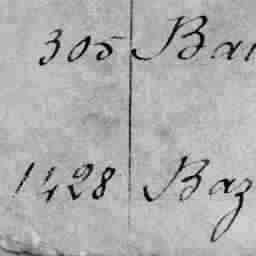 305 Bai
1428 Baz